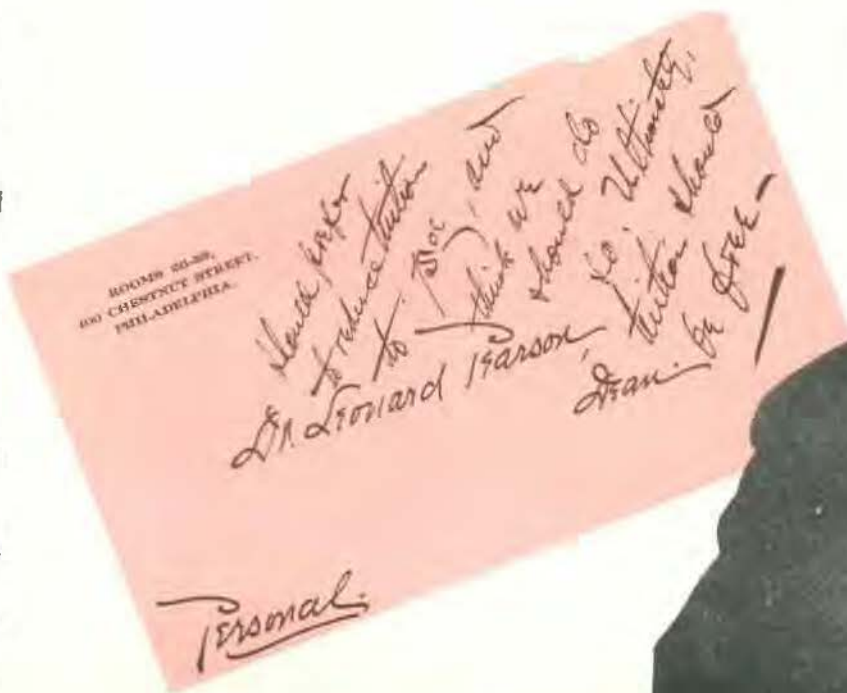 ROOMS
400 CHESTNUT STREET.
PHILADELPHIA.
Should prefer
to reduce tuition
to and
think we
should do
so. Ultimately,
tuition should
be free —
Dr. Leonard Pearson,
Dean.
Personal.